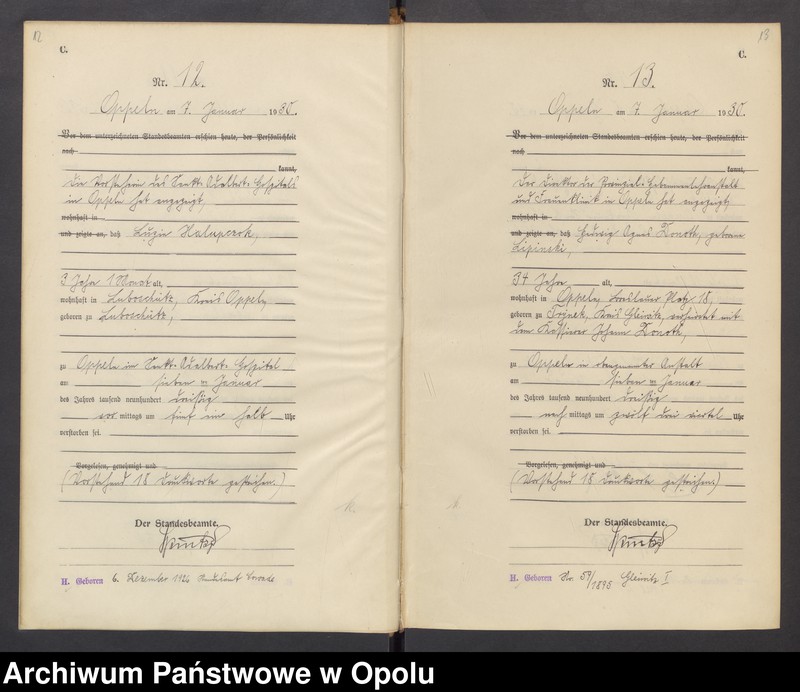 12
C.
Nr. 12.
Oppeln am 7. Januar 1930.
Vor dem unterzeichneten Standesbeamten erschien heute, der Persönlichkeit
nach
kannt,
Die Vorsteherin des Sankt-Adalbert-Hospitals
in Oppeln hat angezeigt,
wohnhaft in
und zeigte an, daß Luzia Halupczok,
3 Jahr 1 Monat alt,
wohnhaft in Luboschütz, Kreis Oppeln
geboren zu Luboschütz,
zu Oppeln im Sankt-Adalbert-Hospital
am sieben ten Januar
des Jahres tausend neunhundert dreißig
vor mittags um fünf ein halb Uhr
verstorben sei.
Vorgelesen, genehmigt und
(Vorstehend 18 Druckworte gestrichen.)
Der Standesbeamte.
H. Geboren 6. Dezember 1926 Standesamt
13
C.
Nr. 13.
Oppeln am 7. Januar 1930.
Vor dem unterzeichneten Standesbeamten erschien heute, der Persönlichkeit
nach
kannt,
Der Direktor der Provinzial-Hebammenlehranstalt
und Frauenklinik in Oppeln hat angezeigt,
wohnhaft in
und zeigte an, daß Hedwig Agnes Konoth, geborene
Lipinski,
34 Jahr alt,
wohnhaft in Oppeln, Breslauer Platz 18,
geboren zu Trynek, Kreis Gleiwitz, verheiratet mit
dem Kassierer Johann Konoth,
zu Oppeln in obengenannter Anstalt
am sieben ten Januar
des Jahres tausend neunhundert dreißig
nach mittags um zwölf drei viertel Uhr
verstorben sei.
Vorgelesen, genehmigt und
(Vorstehend 18 Druckworte gestrichen.)
Der Standesbeamte.
H. Geboren Nr. 59/1896 Gleiwitz I
Archiwum Państwowe w Opolu